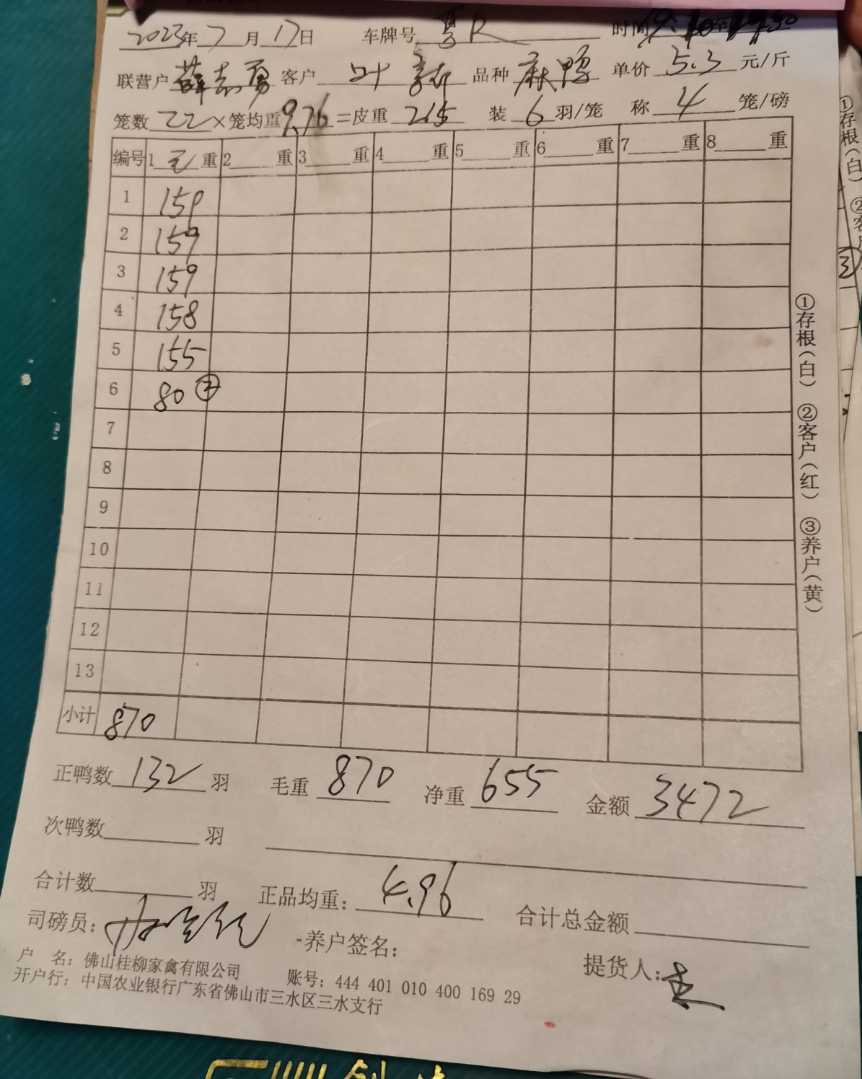 2023年7月17日 车牌号 粤R 时间
联营户 薛志勇 客户 叶 品种 麻鸭 单价 5.3 元/斤
笼数 22 ×笼均重 9.76 =皮重 215 装 6 羽/笼 称 4 笼/磅
编号 1 毛 重 2 重 3 重 4 重 5 重 6 重 7 重 8 重
1 159
2 159
3 159
4 158
5 155
6 80 ②
7
8
9
10
11
12
13
小计 870
正鸭数 132 羽 毛重 870 净重 655 金额 3472
次鸭数 羽
合计数 羽 正品均重: 4.96 合计总金额
司磅员: 养户签名: 提货人:
户 名: 佛山桂柳家禽有限公司 账号: 444 401 010 400 169 29
开户行: 中国农业银行广东省佛山市三水区三水支行
①存根(白) ②客户(红) ③养户(黄)
①存根(白) ②客户